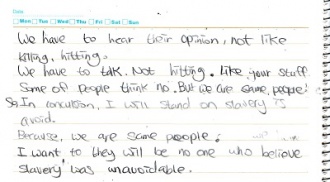 Date
Mon Tue Wed Thu Fri Sat Sun
We have to hear their opinion, not like
killing, hitting.
We have to talk. Not hitting. Like your stuff
Some of people think no. But we are same, people!
So, In concultion, I will stand on slavery is
avoid.
Because, we are same people.
I want to they will be no one who believe
slavery was unavoidable.